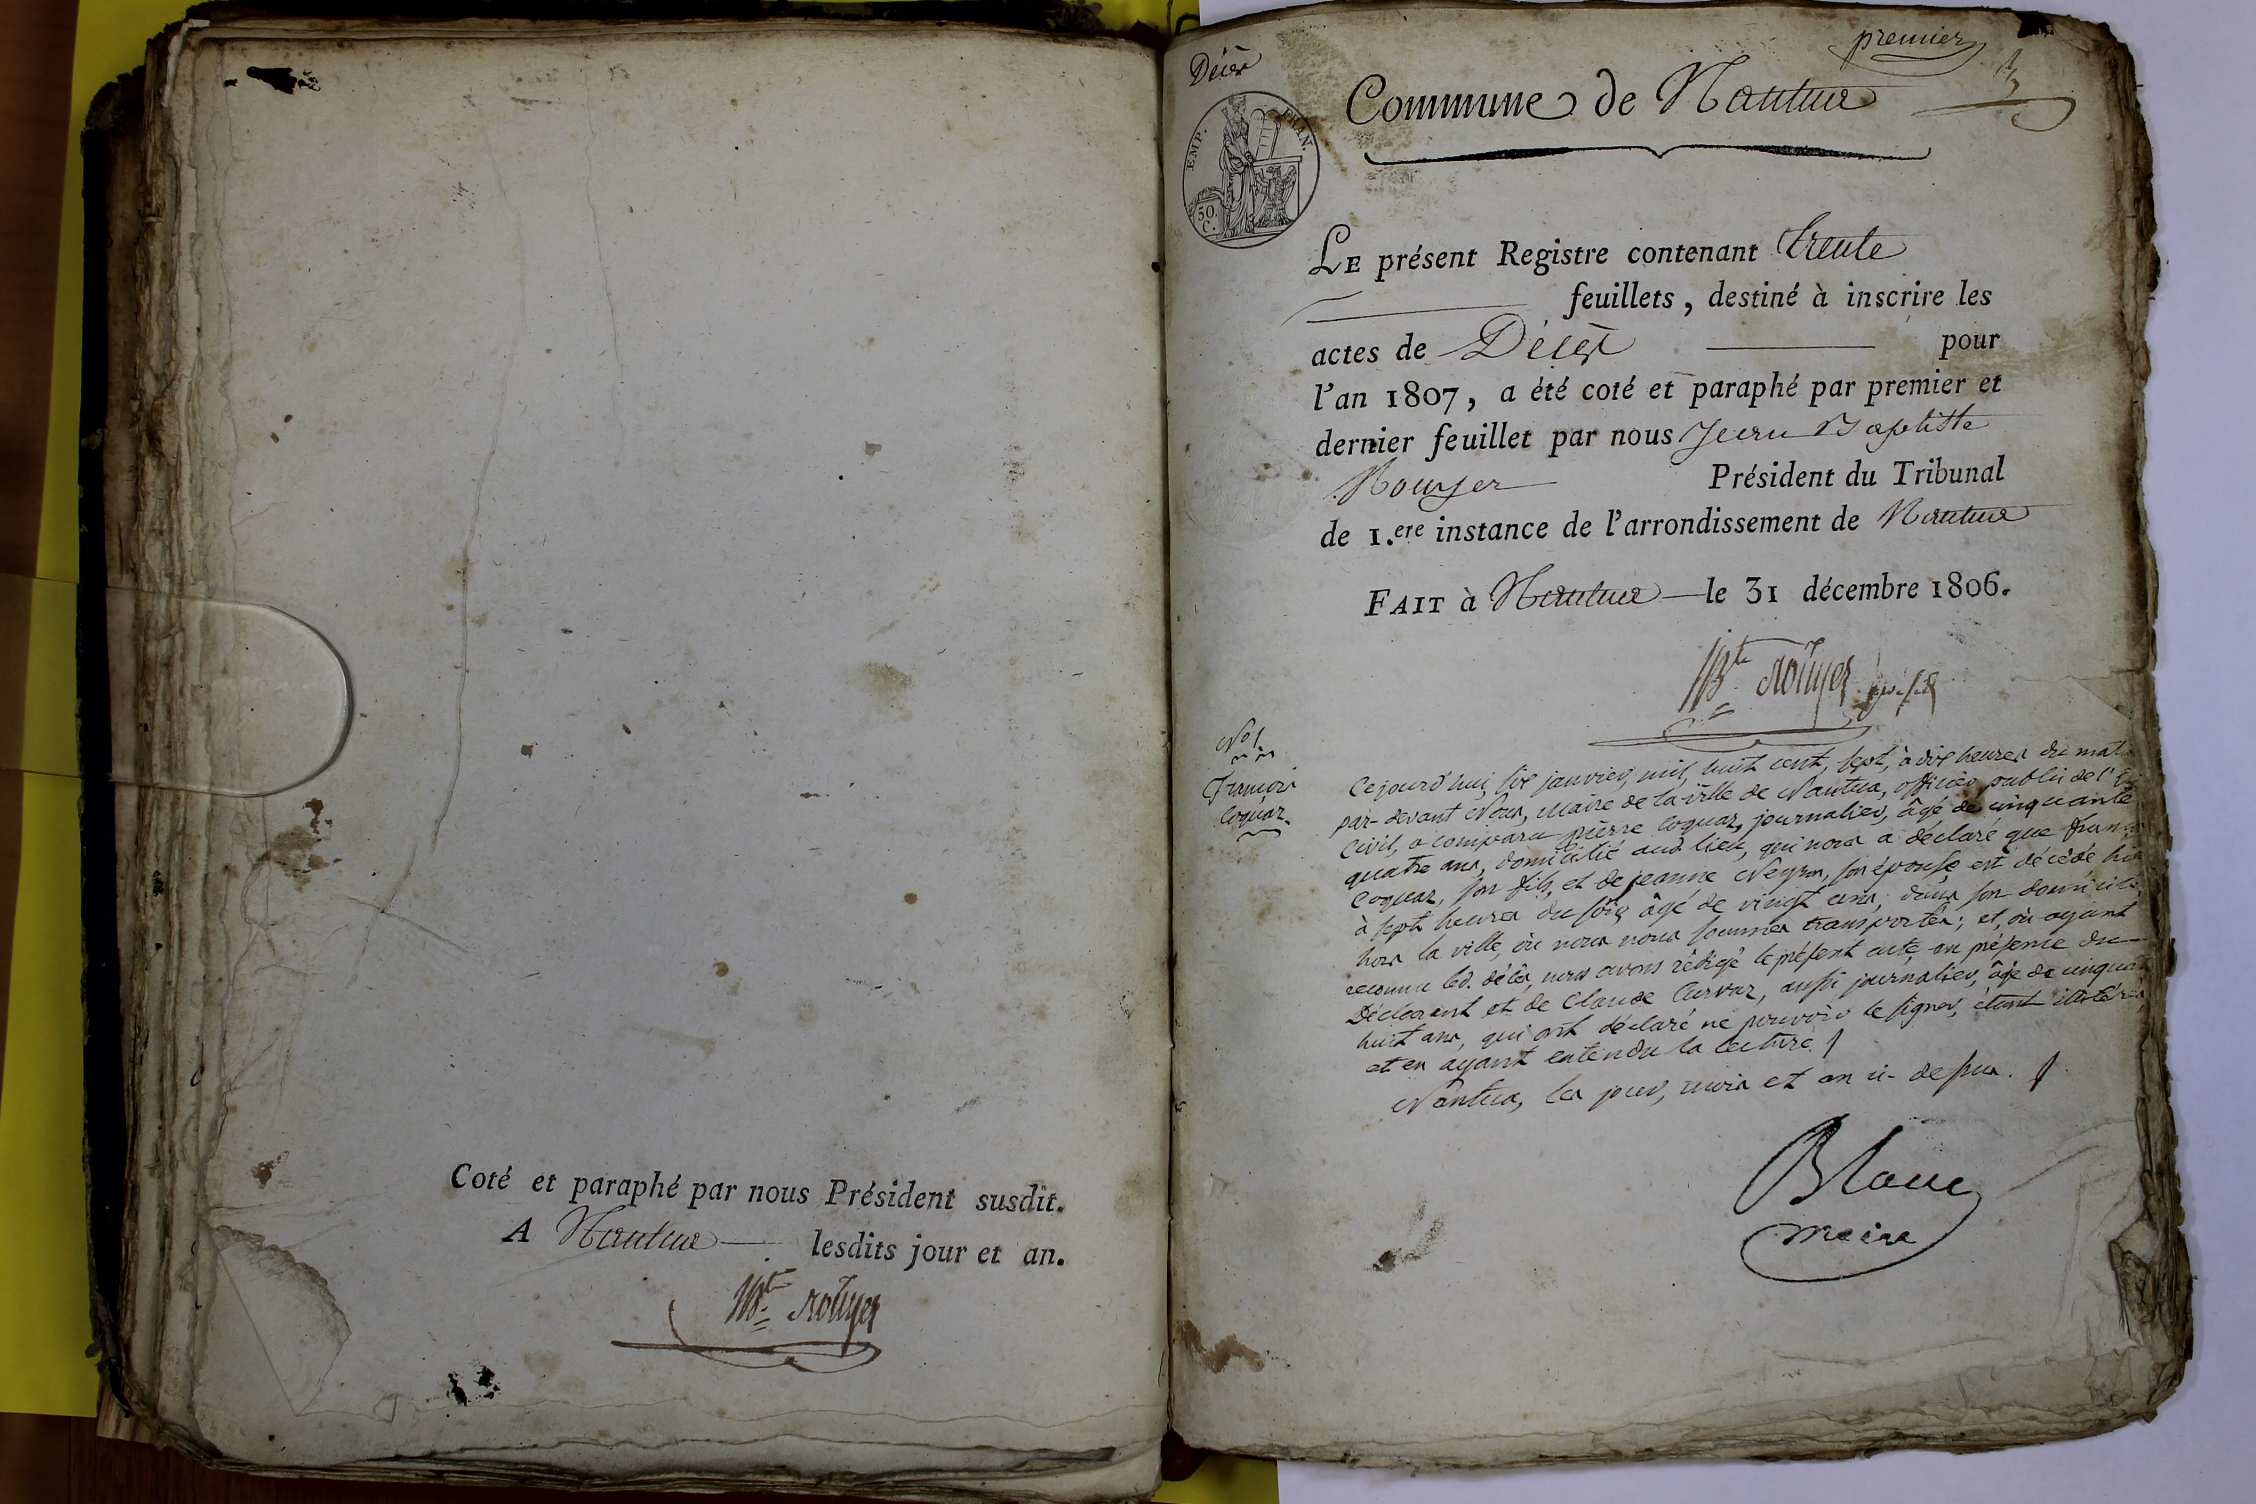 Coté et paraphé par nous Président susdit.
A Nantua lesdits jour et an.
JBte Rouyer
Décès
premier
Commune de Nantua
EMP. FRAN.
50.
C.
LE présent Registre contenant trente
feuillets, destiné à inscrire les
actes de Décès pour
l'an 1807, a été coté et paraphé par premier et
dernier feuillet par nous Jean Baptiste
Rouyer Président du Tribunal
de 1.ere instance de l'arrondissement de Nantua
FAIT à Nantua le 31 décembre 1806.
JBte Rouyer
No 1.
François
Coquaz.
Cejourd'hui, six janvier, mil, huit cent, sept, à dix heures du mat
par-devant Nous, maire de la ville de Nantua, officier public de l'
civil, a comparu pierre Coquaz, journalier, âgé de cinquante
quatre ans, domicilié aud. lieu, qui nous a déclaré que fran
Coquaz, son fils, et de jeanne Neyron, son épouse est décédé hier
à sept heures du soir, âgé de vingt ans, dans son domicile,
hors la ville, où nous nous sommes transportés; et, où ayant
reconnu led. décès, nous avons rédigé le présent acte, en présence du
Déclarant et de Claude Curvaz, aussi journalier, âgé de cinquante
huit ans, qui ont déclaré ne pouvoir le signer, étant illitérés,
et en ayant entendu la lecture.
Nantua, les jour, mois et an ci-dessus.
Blanc
maire